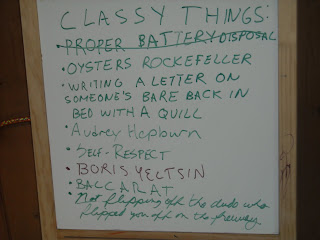 CLASSY THINGS:
• PROPER BATTERY DISPOSAL
• OYSTERS ROCKEFELLER
• WRITING A LETTER ON
SOMEONE'S BARE BACK IN
BED WITH A QUILL
• Audrey Hepburn
• SELF-RESPECT
• BORIS YELTSIN
• BACCARAT
• Not flipping off the dude who
flipped you off on the freeway